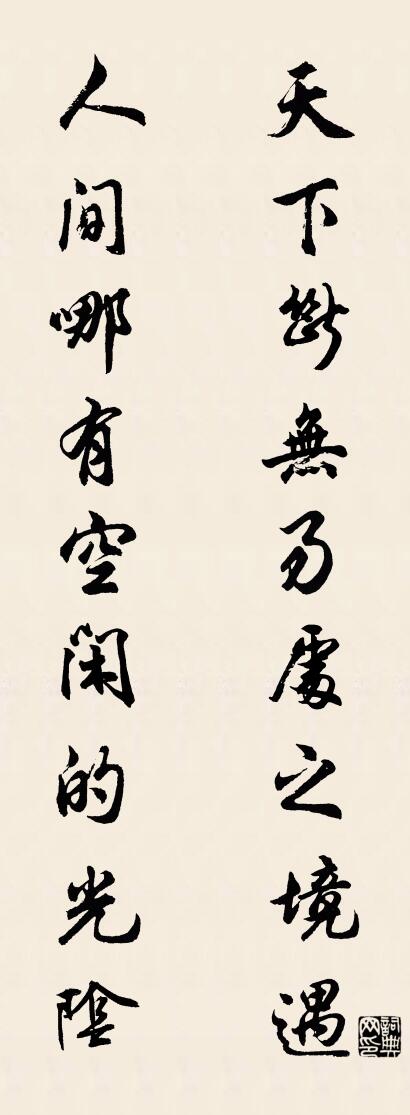 天下斷無易處之境遇
人间哪有空闲的光陰
詞典网印